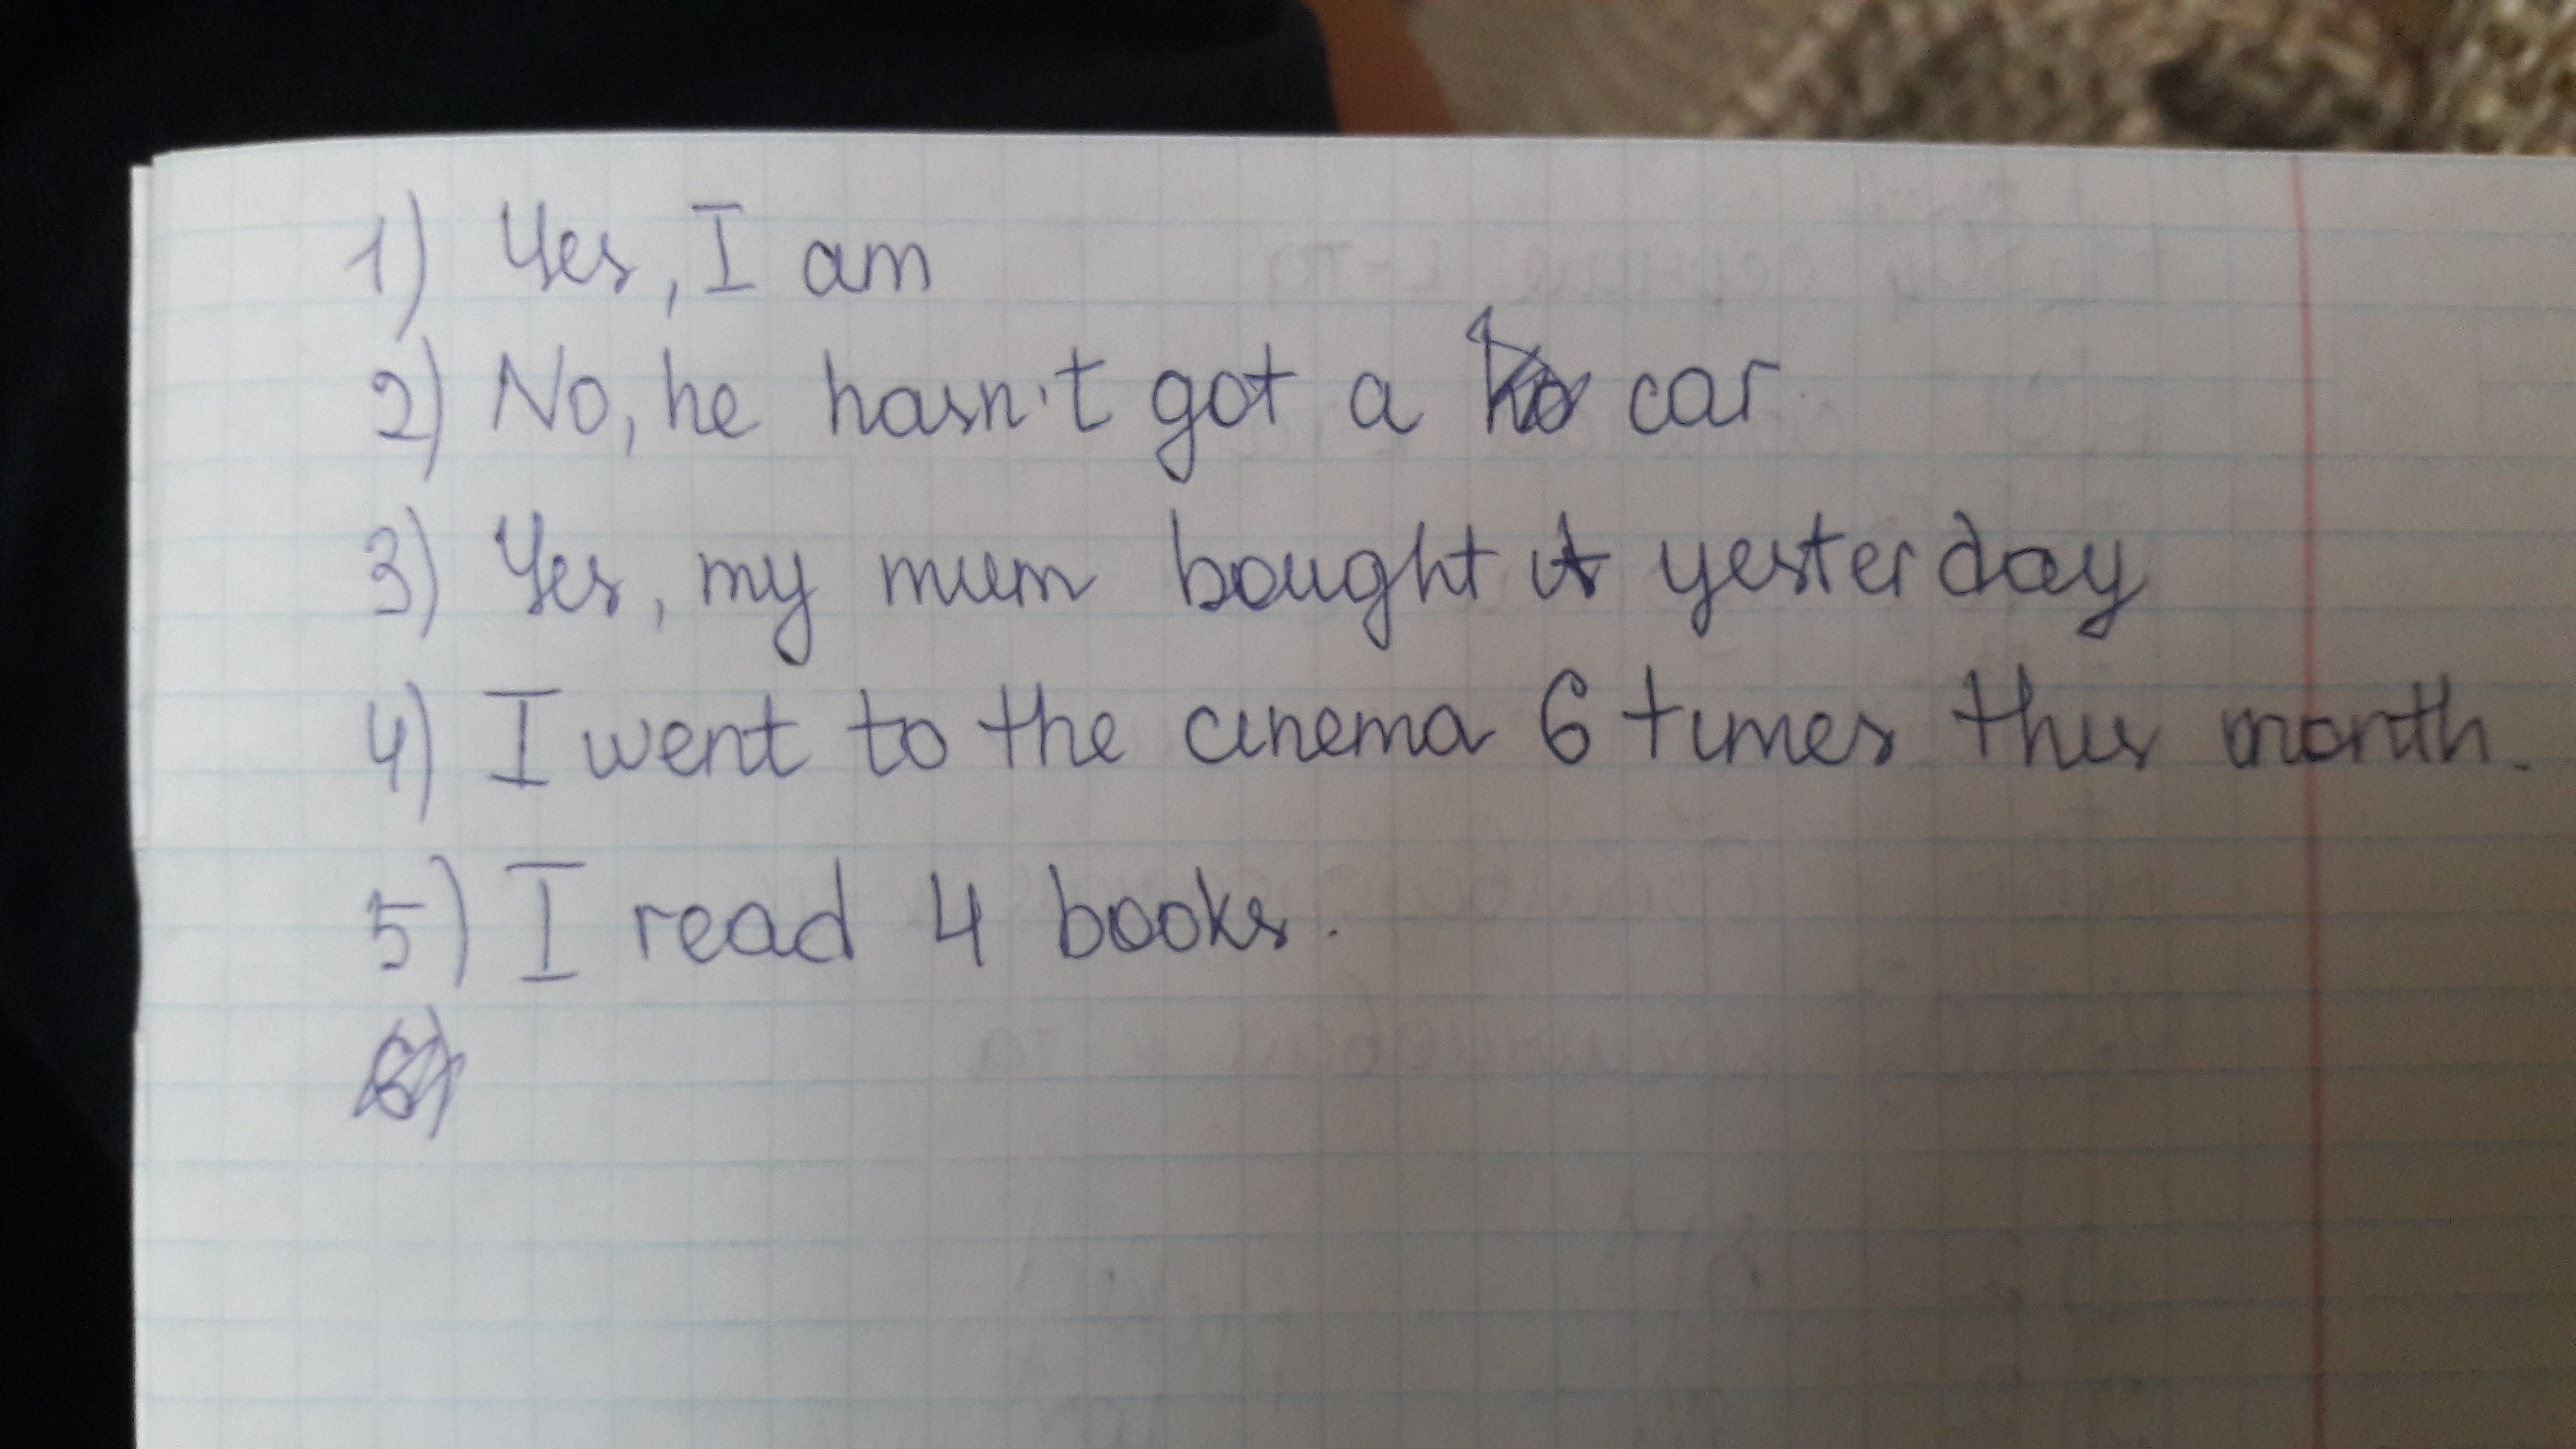 1) Yes, I am
2) No, he hasn't got a car.
3) Yes, my mum bought it yesterday
4) I went to the cinema 6 times this month.
5) I read 4 books.